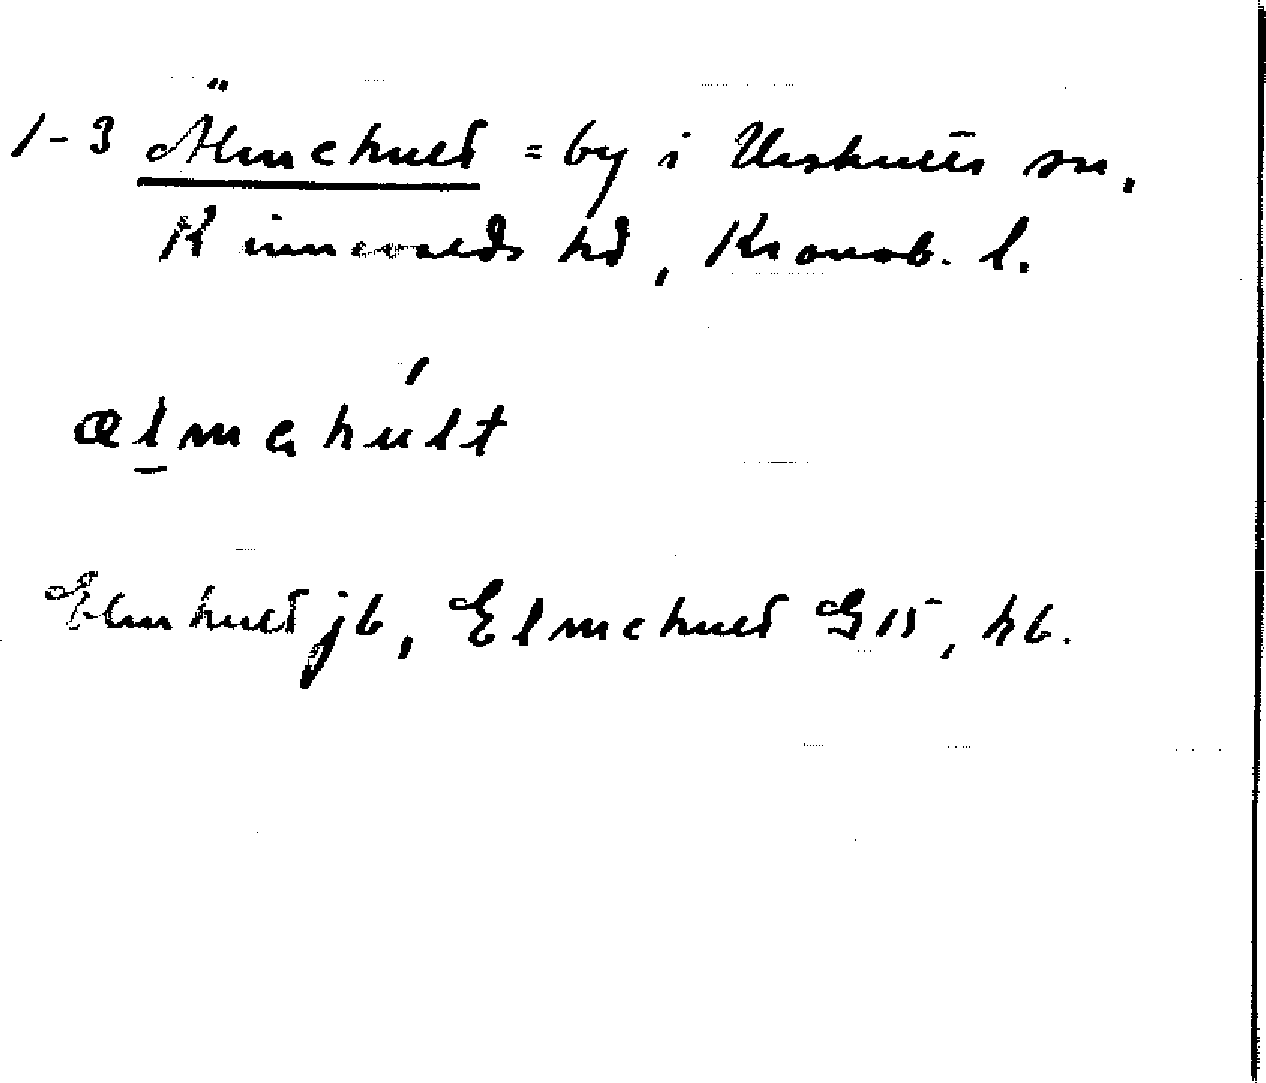 1-3 Älmehult = by i Urshults sn,
Kinnevalds hd, Kronob. l.
ælmahúlt
Elmhult jb, Elmehult G15, hb.